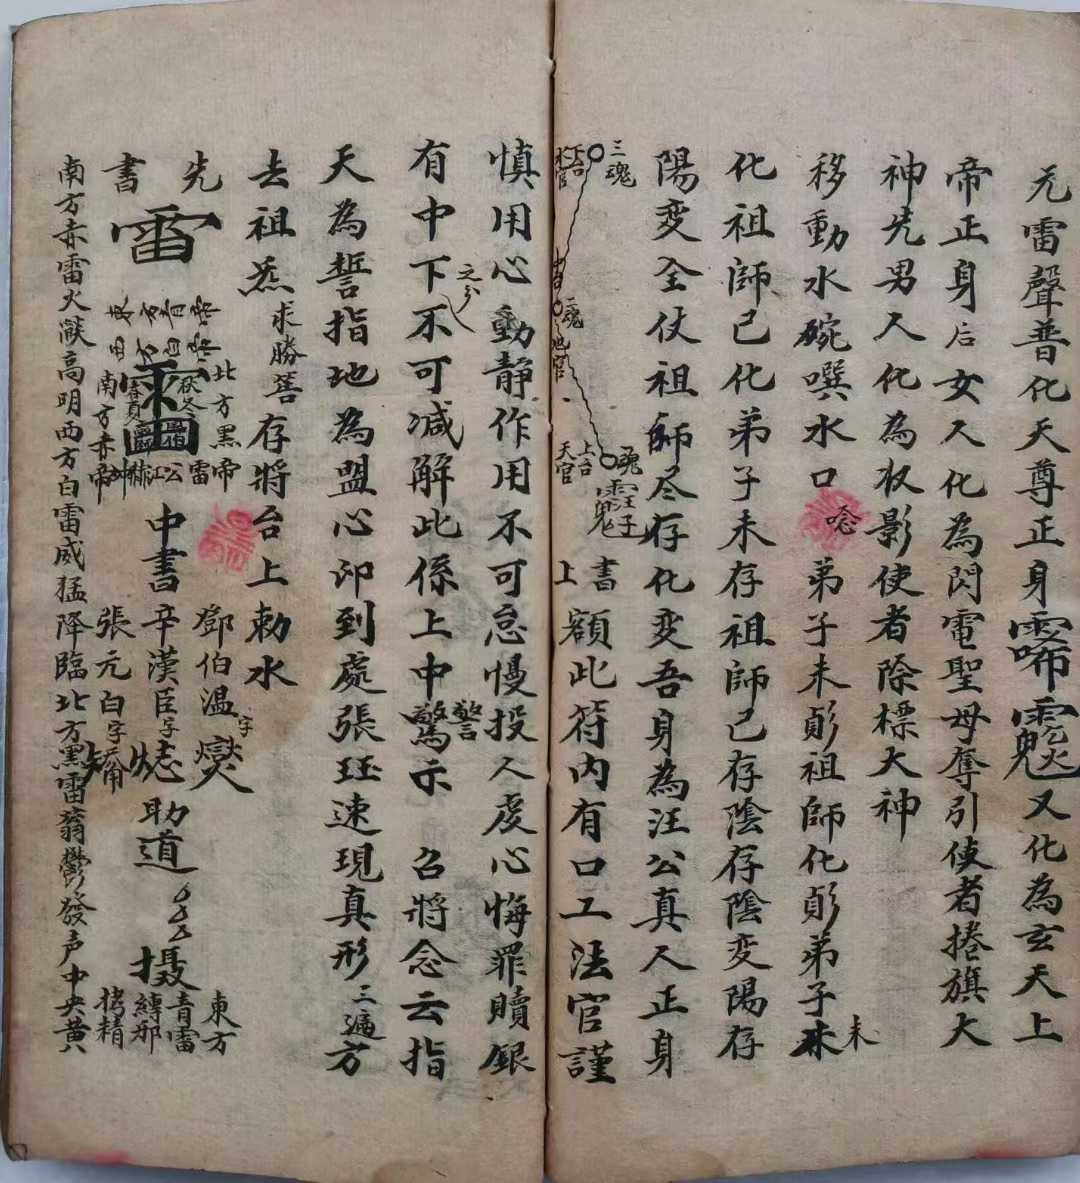 元雷聲普化天尊正身 又化為玄天上
帝正身后女人化為閃電聖母奪引使者捲旗大
神先男人化為收影使者除標大神
移動水碗噀水口唸弟子未 祖師化 弟子未
未
化祖師已化弟子未存祖師已存陰存陰变陽存
陽变全仗祖師尽存化变吾身為汪公真人正身
三魂
下台
水官
中台
魂
地官
魂
上台
天官
書
上額此符內有口工法官謹
慎用心動静作用不可怠慢投人虔心悔罪贖銀
有中下不可減解此係上中驚示 召將念云指
之分
警
天為誓指地為盟心印到處張珏速現真形三遍方
去祖炁求勝筶存將台上勅水
先
書
雷
北方黑帝
南方赤帝
春夏
秋冬
雷公江赫冲
中書
鄧伯温字燮
辛漢臣字
張元白字
助道
摄
東方
青雷
縛邪
拷精
南方赤雷火燄高明西方白雷威猛降臨北方黑雷蓊鬱發声中央黄